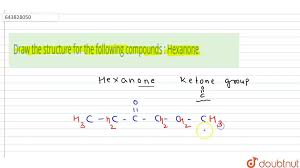 643828050
Draw the structure for the following compounds : Hexanone.
Hexanone Ketone group
O
-C-
O
H3C - H2C - C - CH2 - CH2 - CH3
doubtnut